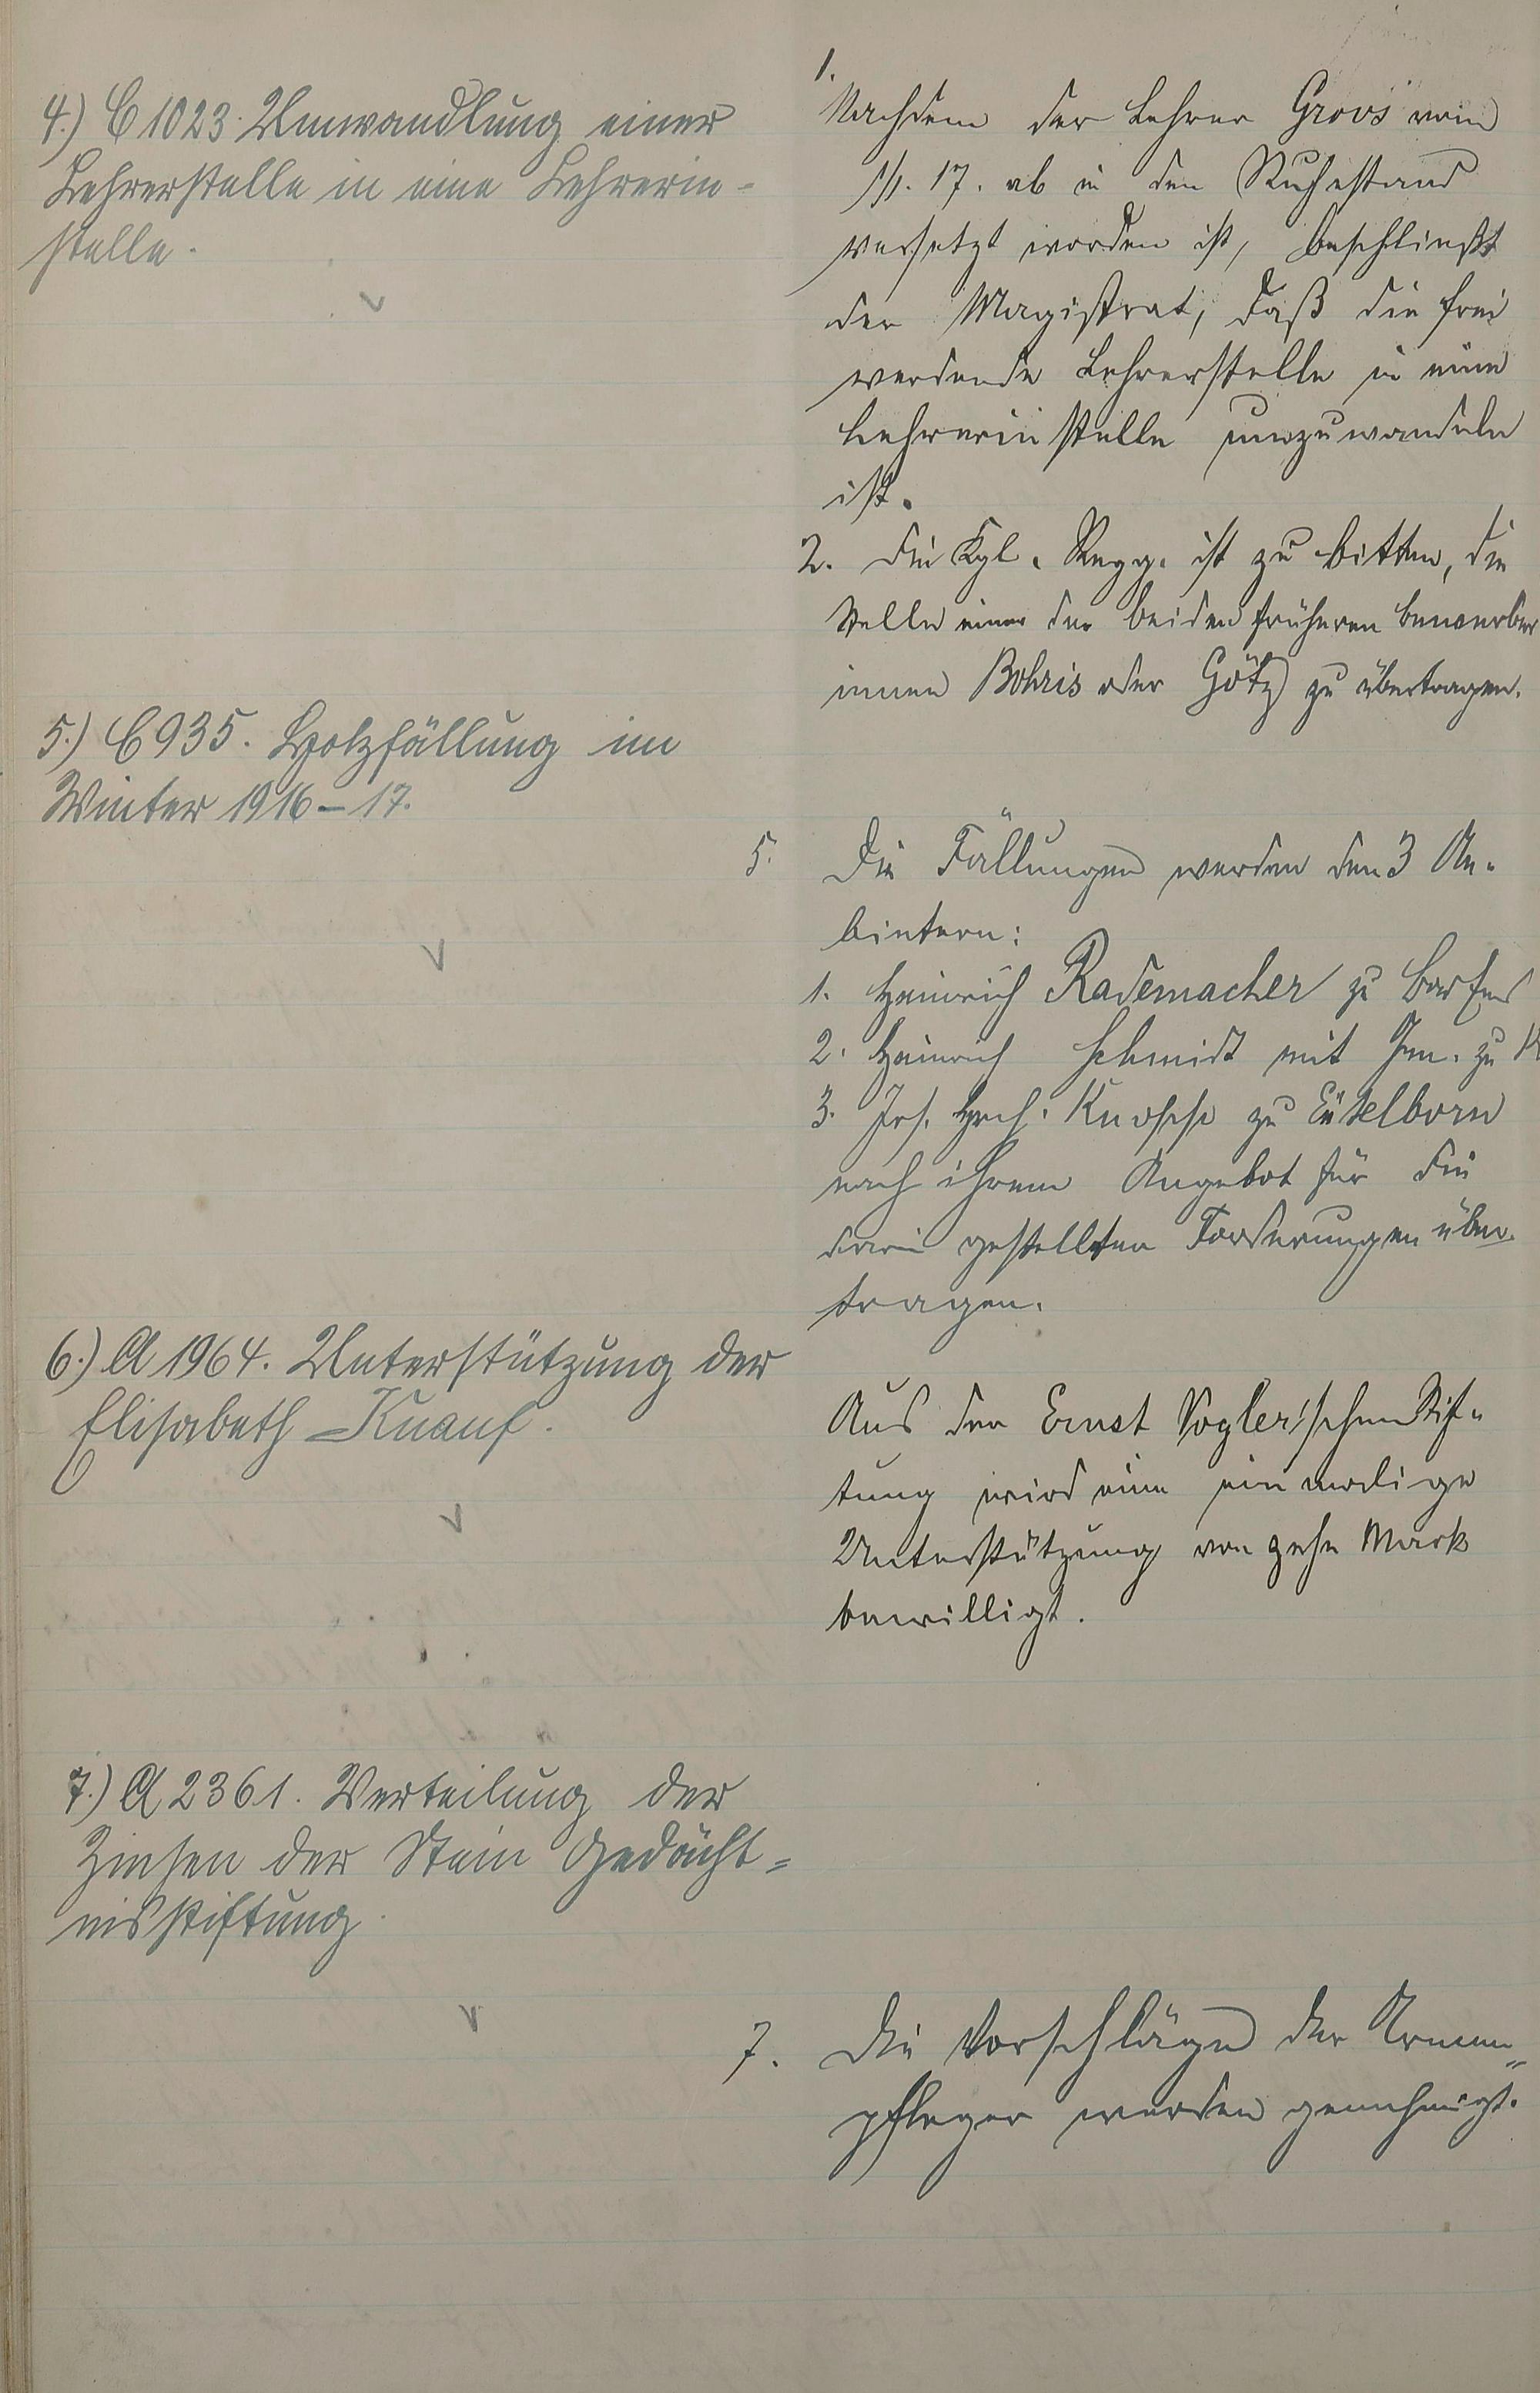 4.) C 1023. Umwandlung einer
Lehrerstelle in eine Lehrerin-
stelle.
1.
Nachdem der Lehrer Grovs vom
1/1. 17. ab in den Ruhestand
versetzt worden ist, beschließt
der Magistrat, daß die frei
werdende Lehrerstelle in eine
Lehrerinstelle umzuwandeln
ist.
2. Die Kgl. Regg. ist zu bitten, die
Stelle einer der beiden früheren Bewerber
innen Bohris oder Götz zu übertragen.
5.) C 935. Holzfällung im
Winter 1916–17.
5. Die Fällungen werden den 3 An-
bietern:
1. Heinrich Rademacher zu
2. Heinrich Schmidt mit Gen. zu
3. Jos. Hrch. Knoppp zu Eitelborn
nach ihrem Angebot für die
darin gestellten Forderungen über-
tragen.
6.) A 1964. Unterstützung der
Elisabeth Knauf.
Aus der Ernst Vogler'schen Stif-
tung wird eine einmalige
Unterstützung von zehn Mark
bewilligt.
7.) A 2361. Verteilung der
Zinsen der Stein Gedächt=
nisstiftung.
7. Die Vorschläge der Armen=
pfleger werden genehmigt.